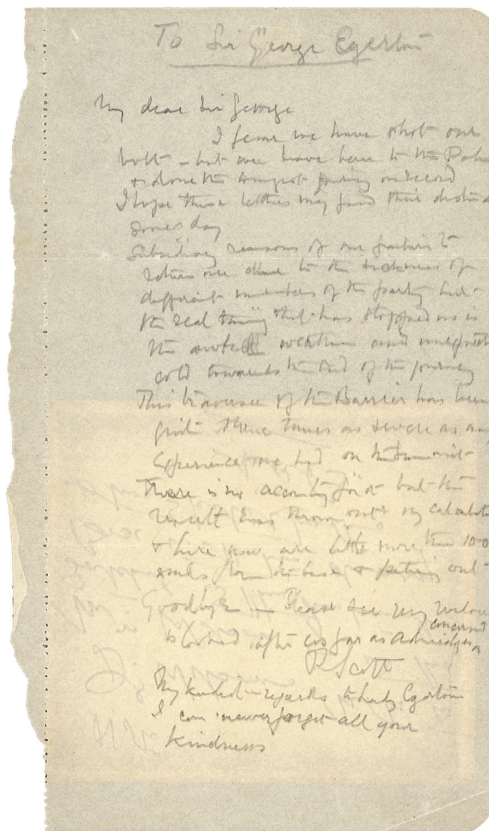 To Sir George Egerton
My dear Sir George
I fear we have shot our
bolt – but we have been to the Pole
& done the longest journey on record
I hope these letters may find their destina
some day
Subsidiary reasons of our failure to
return are due to the sickness of
different members of the party but
the real thing that has stopped us is
the awful weather and unexpected
cold towards the end of the journey
This traverse of the Barrier has been
quite three times as severe as any
experience we had on the summit
There is no accounting for it but the
result has thrown out my calculat
& here we are little more than 100
miles from the base & petering out
Goodbye – Please see my widow
is looked after as far as Admiralty is
concerned
R Scott
My kindest regards to Lady Egerton
I can never forget all your
kindness